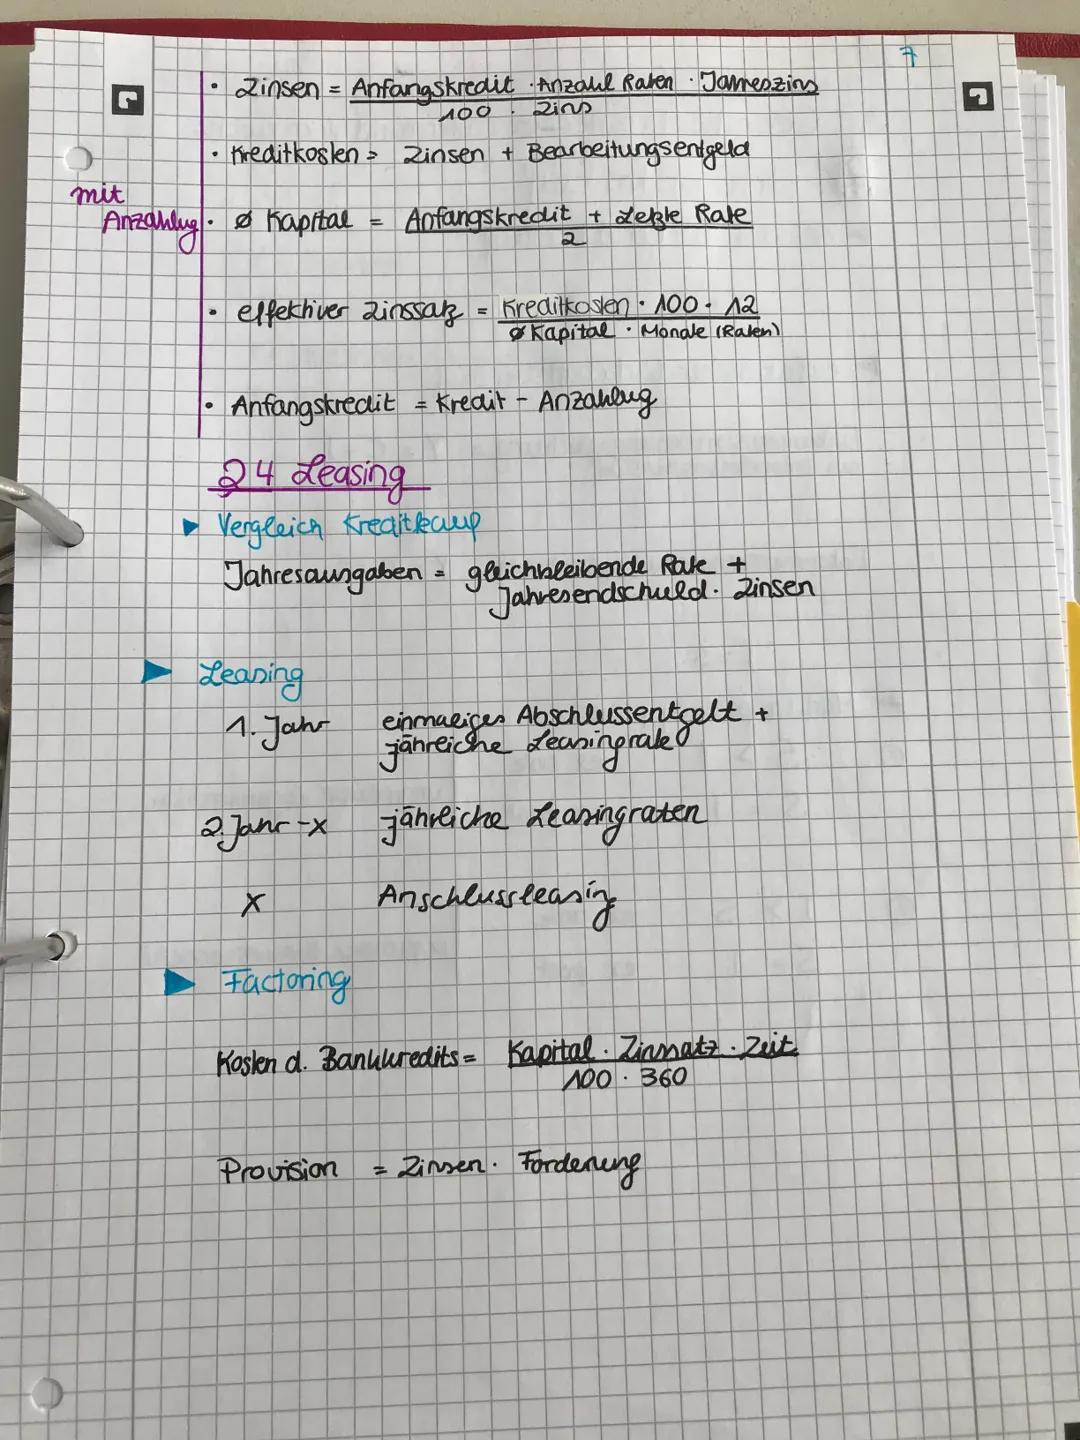 7
• Zinsen = Anfangskredit · Anzahl Raten · Jahreszins
100 · Zins
• Kreditkosten = Zinsen + Bearbeitungsentgeld
mit
Anzahlug • ø Kapital = Anfangskredit + Letzte Rate
2
• effektiver Zinssatz = Kreditkosten · 100 · 12
ø Kapital · Monate (Raten)
• Anfangskredit = Kredit - Anzahlug
24 Leasing
▶ Vergleich Kreditkauf
Jahresausgaben = gleichbleibende Rate +
Jahresendschuld · Zinsen
▶ Leasing
1. Jahr einmaliges Abschlussentgelt +
jährliche Leasingrate
2. Jahr - x jährliche Leasingraten
x Anschlussleasing
▶ Factoring
Kosten d. Bankkredits = Kapital · Zinssatz · Zeit
100 · 360
Provision = Zinsen · Forderung